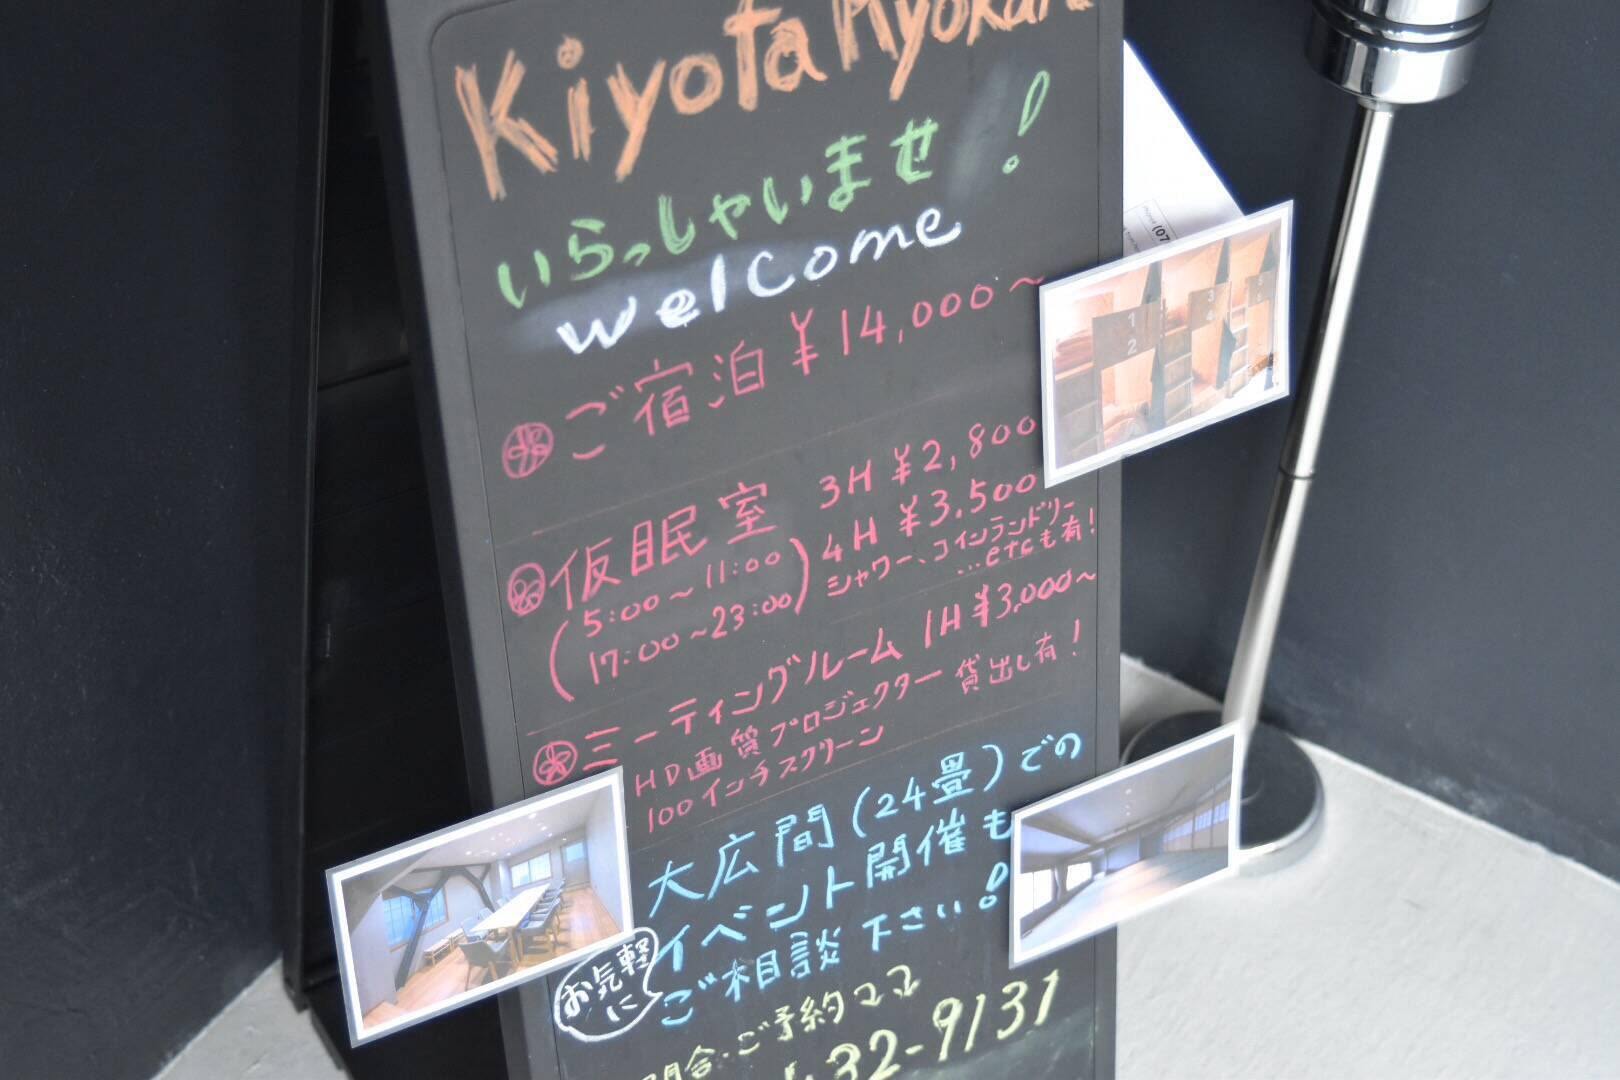 Kiyota Ryokan
いらっしゃいませ!
welcome
ご宿泊 ¥14,000~
仮眠室 3H ¥2,800
(5:00~11:00 4H ¥3,500
17:00~23:00) シャワー、コインランドリー
...etcも有!
ミーティングルーム 1H ¥3,000~
HD画質プロジェクター貸出し有!
100インチスクリーン
大広間(24畳)での
イベント開催も
お気軽に
ご相談下さい!
問合・ご予約
32-9131
(07
1
2
3
4